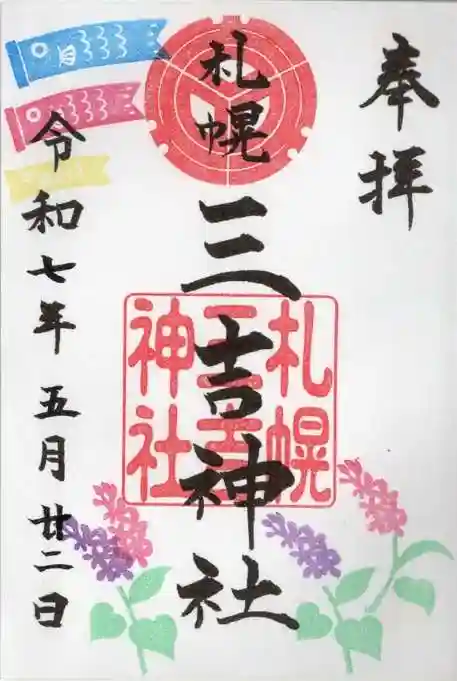 奉拝
札幌
三吉神社
札幌
三吉
神社
令和七年五月廿二日